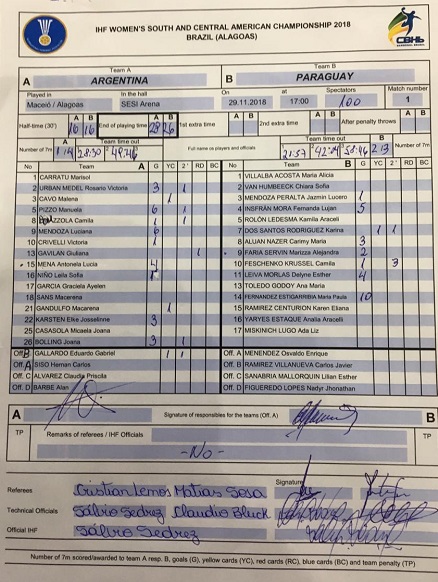 IHF WOMEN'S SOUTH AND CENTRAL AMERICAN CHAMPIONSHIP 2018
BRAZIL (ALAGOAS)
CBHb
Team A Team B
A ARGENTINA B PARAGUAY
Played in In the hall On at Spectators Match number
Maceió / Alagoas SESI Arena 29.11.2018 17:00 100 1
A B A B A B A B A B
Half-time (30') 16 16 End of playing time 28 26 1st extra time 2nd extra time After penalty throws
Number of 7m Team time out Full name of players and officials Team time out Number of 7m
28:50 21:57
No Team A G YC 2' RD BC No Team B G YC 2' RD BC
1 CARRATU Marisol
2 URBAN MEDEL Rosario Victoria 3 1
3 CAVO Malena 1
5 PIZZO Manuela 6 1
8 Camila 1 1
9 MENDOZA Luciana 6
10 CRIVELLI Victoria 1
13 GAVILAN Giuliana 1
15 MENA Antonela Lucia 4
16 NIÑO Leila Sofia
17 GARCIA Graciela Ayelen
18 SANS Macarena
21 GANDULFO Macarena 1
22 KARSTEN Elke Josselinne 3
25 CASASOLA Micaela Joana
26 BOLLING Joana 3 1
Off. B GALLARDO Eduardo Gabriel 1 1
Off. A SISO Hernan Carlos
Off. C ALVAREZ Claudia Priscila
Off. D BARBE Alan
1 VILLALBA ACOSTA Maria Alicia
2 VAN HUMBEECK Chiara Sofia
3 MENDOZA PERALTA Jazmir Lucero 1
4 INSFRAN MORA Fernanda Lujan 5
5 ROLÓN LEDESMA Kamila Araceli
7 DOS SANTOS RODRIGUEZ Karina 1 1
8 ALUAN NAZER Carimy Maria 3
9 FARIA SERVIN Maritza Alejandra 2
10 FESCHENKO KRUSSEL Camila 1 3
11 LEIVA MORLAS Delyne Esther 4
13 TOLEDO GODOY Ana Maria
14 FERNANDEZ ESTIGARRIBIA Maria Paula 10
15 RAMIREZ CENTURION Karen Eliana
16 YARYES ESTAQUE Analia Aracelli
17 MISKINICH LUGO Ada Liz
Off. A MENENDEZ Osvaldo Enrique
Off. B RAMIREZ VILLANUEVA Carlos Javier
Off. C SANABRIA MALLORQUIN Lilian Esther
Off. D FIGUEREDO LOPES Nadyr Jhonathan
A Signature of responsibles for the teams (Off. A) B
TP Remarks of referees / IHF Officials TP
-No-
Signature
Referees Cristian Lemos Matias Sosa
Technical Officials Sálvio Sedrez Claudio Bluck
Official IHF Sálvio Sedrez
Number of 7m scored/awarded to team A resp. B, goals (G), yellow cards (YC), red cards (RC), blue cards (BC) and team penalty (TP)